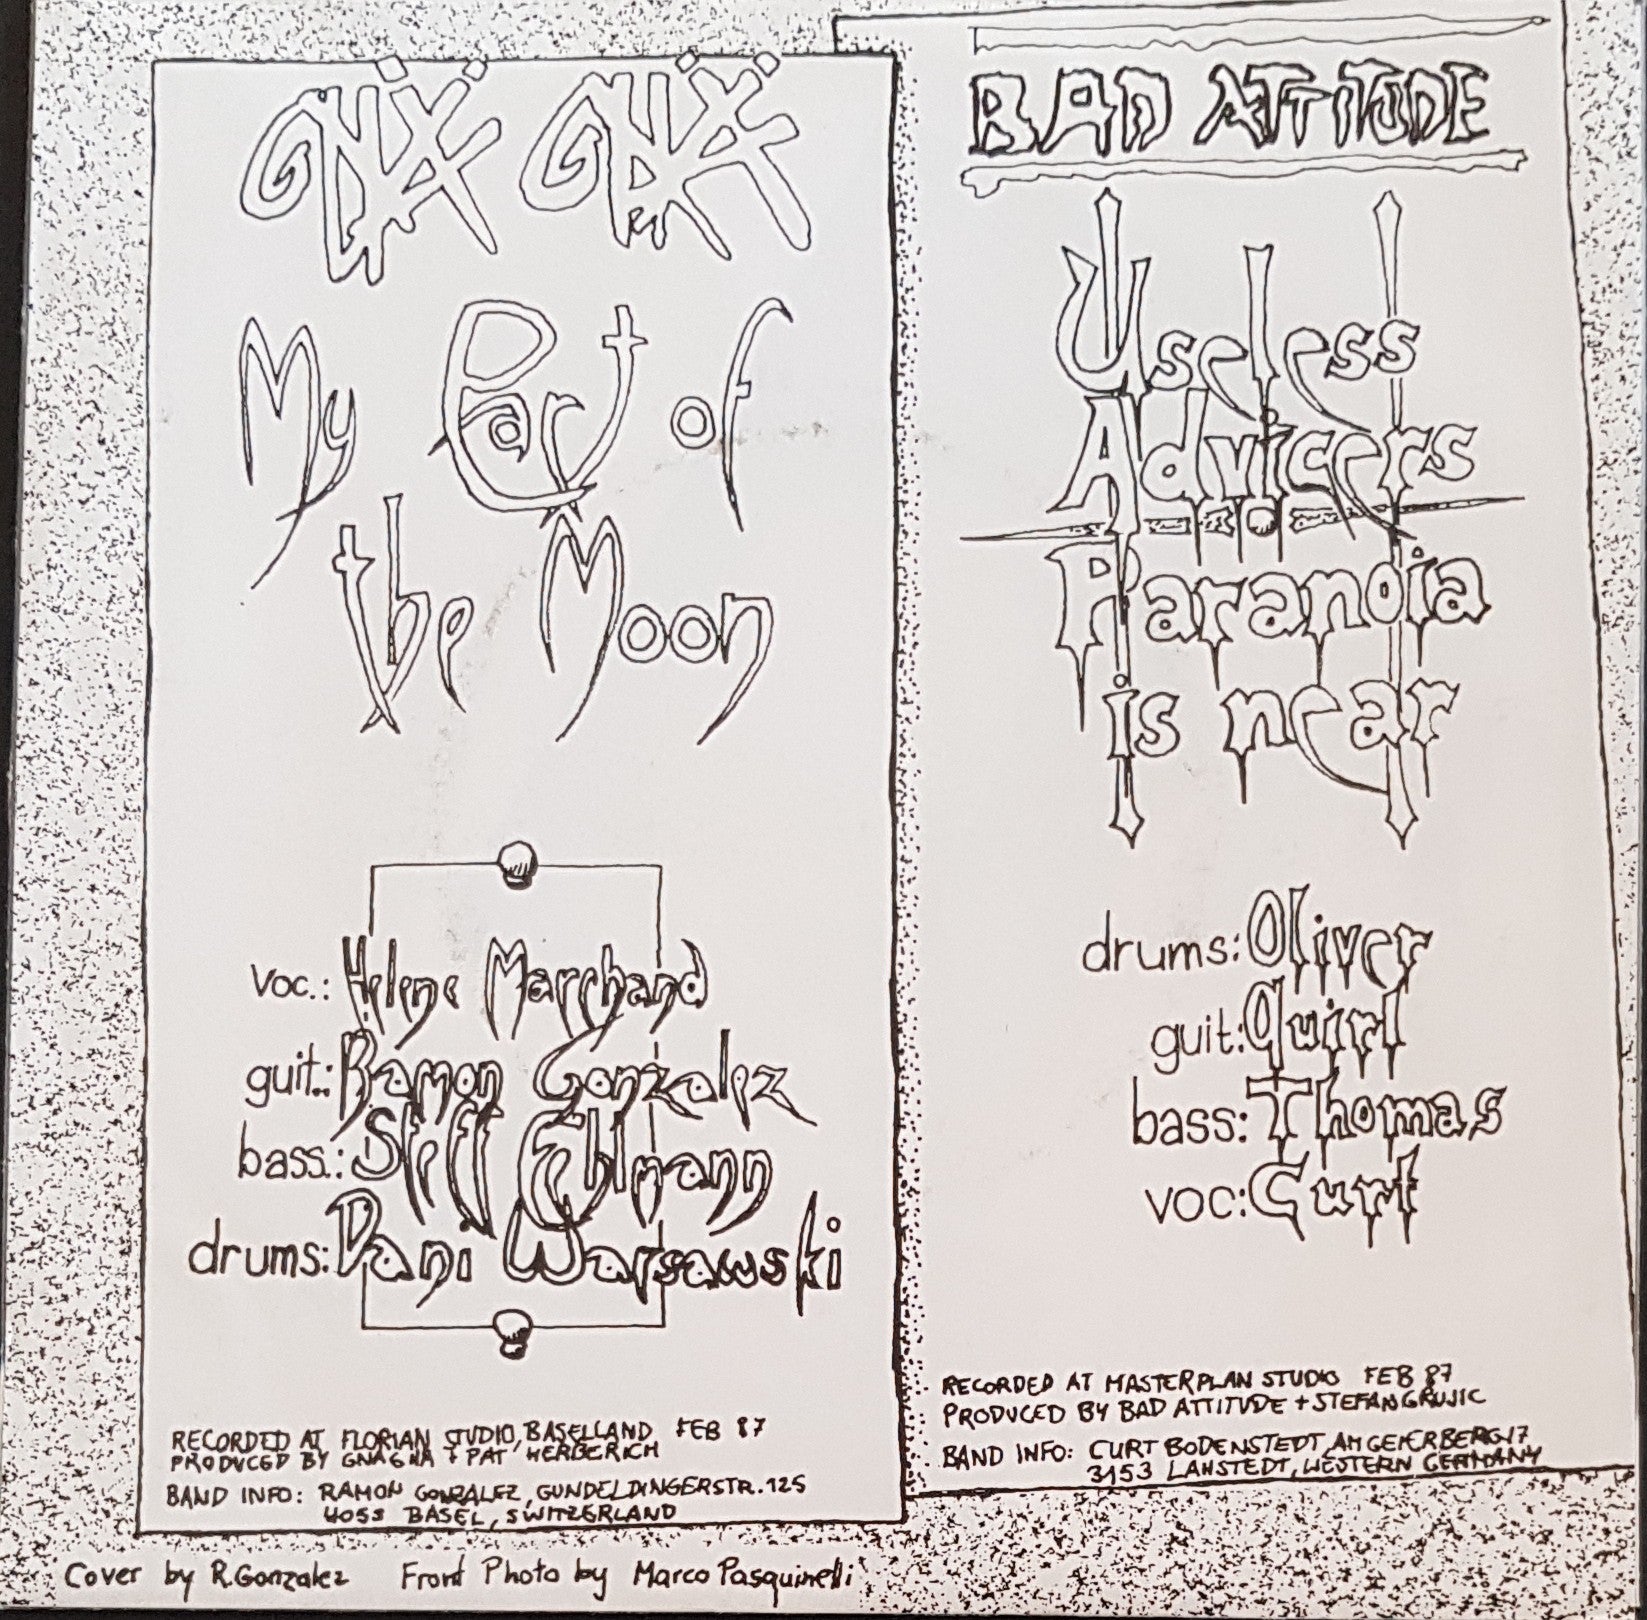 GNÄ GNÄ
My Part of
the Moon
voc.: Helene Marchand
guit.: Ramon Gonzalez
bass.: Steff Fehlmann
drums: Dani Warsawski
RECORDED AT FLORIAN STUDIO, BASELLAND FEB 87
PRODUCED BY GNAGNA + PAT HERBERICH
BAND INFO: RAMON GONZALEZ, GUNDELDINGERSTR. 125
4053 BASEL, SWITZERLAND
Cover by R. Gonzalez Front Photo by Marco Pasquinelli
BAD ATTITUDE
Useless
Advicers
Paranoia
is near
drums: Oliver
guit: Quirl
bass: Thomas
voc: Curt
RECORDED AT MASTERPLAN STUDIO FEB 87
PRODUCED BY BAD ATTITUDE + STEFAN GRUJIC
BAND INFO: CURT BODENSTEDT, AM GEIERBERG 17
3153 LAHSTEDT, WESTERN GERMANY